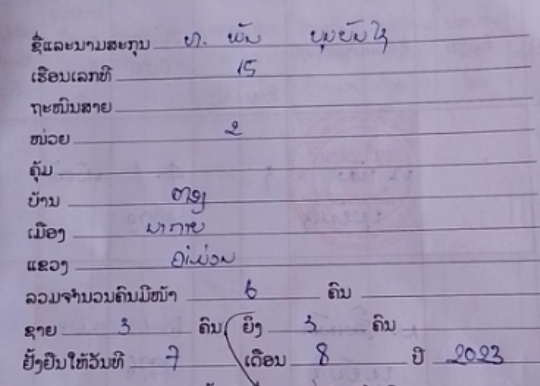 ຊື່ແລະນາມສະກຸນ ທ. ພັນ
ເຮືອນເລກທີ 15
ຖະໜົນສາຍ
ໜ່ວຍ 2
ຄຸ້ມ
ບ້ານ
ເມືອງ ນາກາຍ
ແຂວງ ຄໍາມ່ວນ
ລວມຈຳນວນຄົນມີໜ້າ 6 ຄົນ
ຊາຍ 3 ຄົນ ຍິງ 3 ຄົນ
ຢັ້ງຢືນໃຫ້ວັນທີ 7 ເດືອນ 8 ປີ 2023